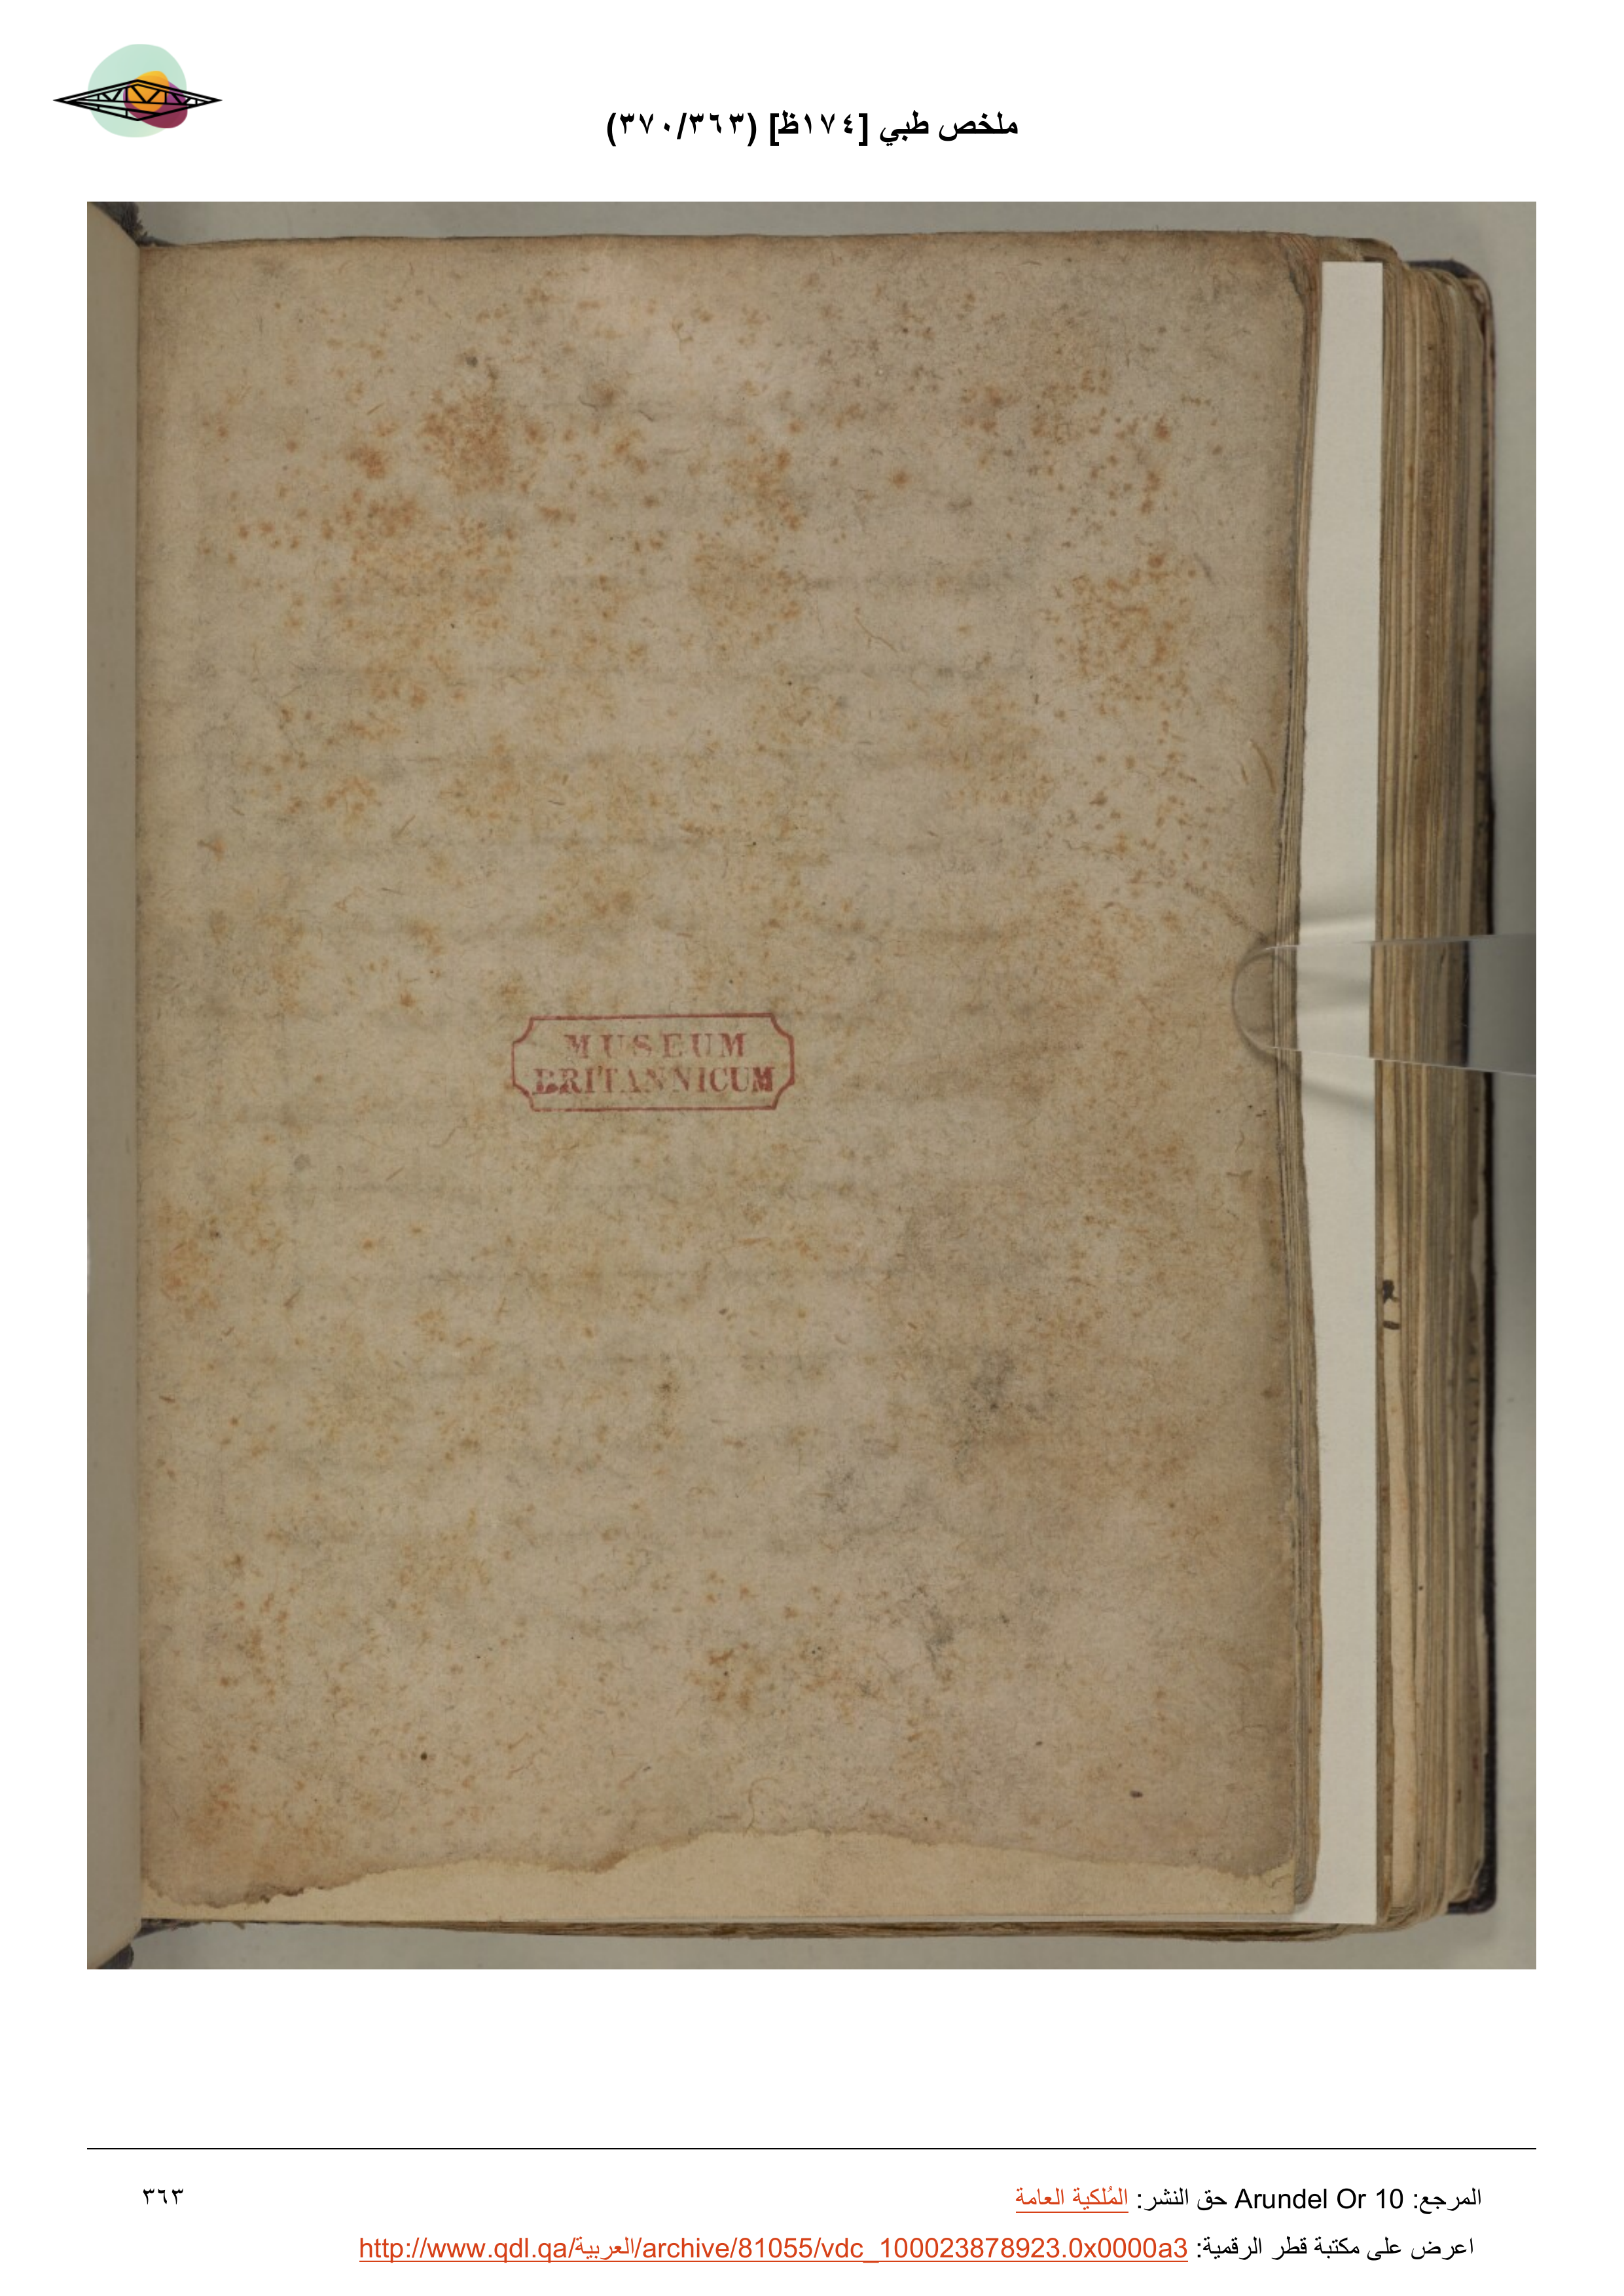 ملخص طبي [١٧٤ظ] (٣٧٠/٣٦٣)
MUSEUM
BRITANNICUM
المرجع: Arundel Or 10 حق النشر: المُلكية العامة
٣٦٣
اعرض على مكتبة قطر الرقمية: http://www.qdl.qa/العربية/archive/81055/vdc_100023878923.0x0000a3